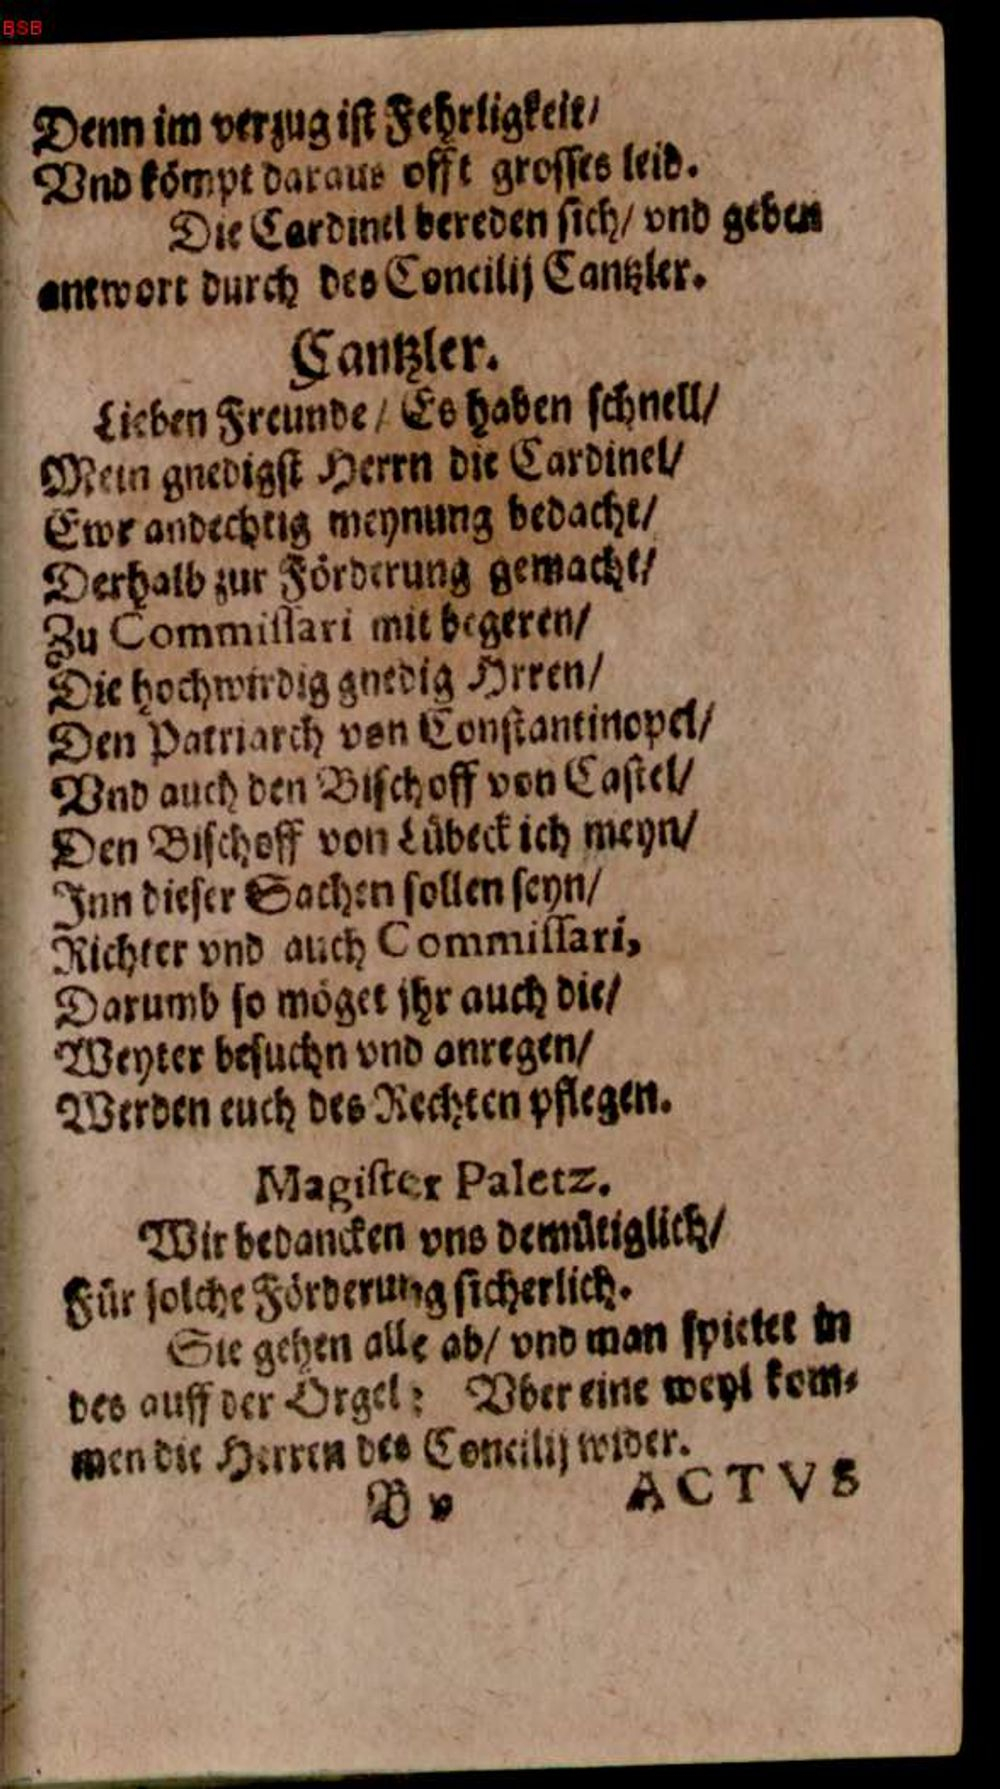 BSB
Denn im verzug ist Fehrligkeit/
Vnd kömpt daraus offt grosses leid.
Die Cardinel bereden sich/ vnd geben
antwort durch des Concilij Cantzler.
Cantzler.
Lieben Freunde/ Es haben schnell/
Mein gnedigst Herrn die Cardinel/
Ewr andechtig meynung bedacht/
Derhalb zur Förderung gemacht/
Zu Commissari mit begeren/
Die hochwirdig gnedig Hrren/
Den Patriarch von Constantinopel/
Vnd auch den Bischoff von Castel/
Den Bischoff von Lübeck ich meyn/
Inn dieser Sachen sollen seyn/
Richter vnd auch Commissari,
Darumb so möget jhr auch die/
Weyter besuchn vnd anregen/
Werden euch des Rechten pflegen.
Magister Paletz.
Wir bedancken vns demütiglich/
Für solche Förderung sicherlich.
Sie gehen alle ab/ vnd man spielet in
des auff der Orgel: Vber eine weyl kom-
men die Herren des Concilij wider.
B v ACTVS